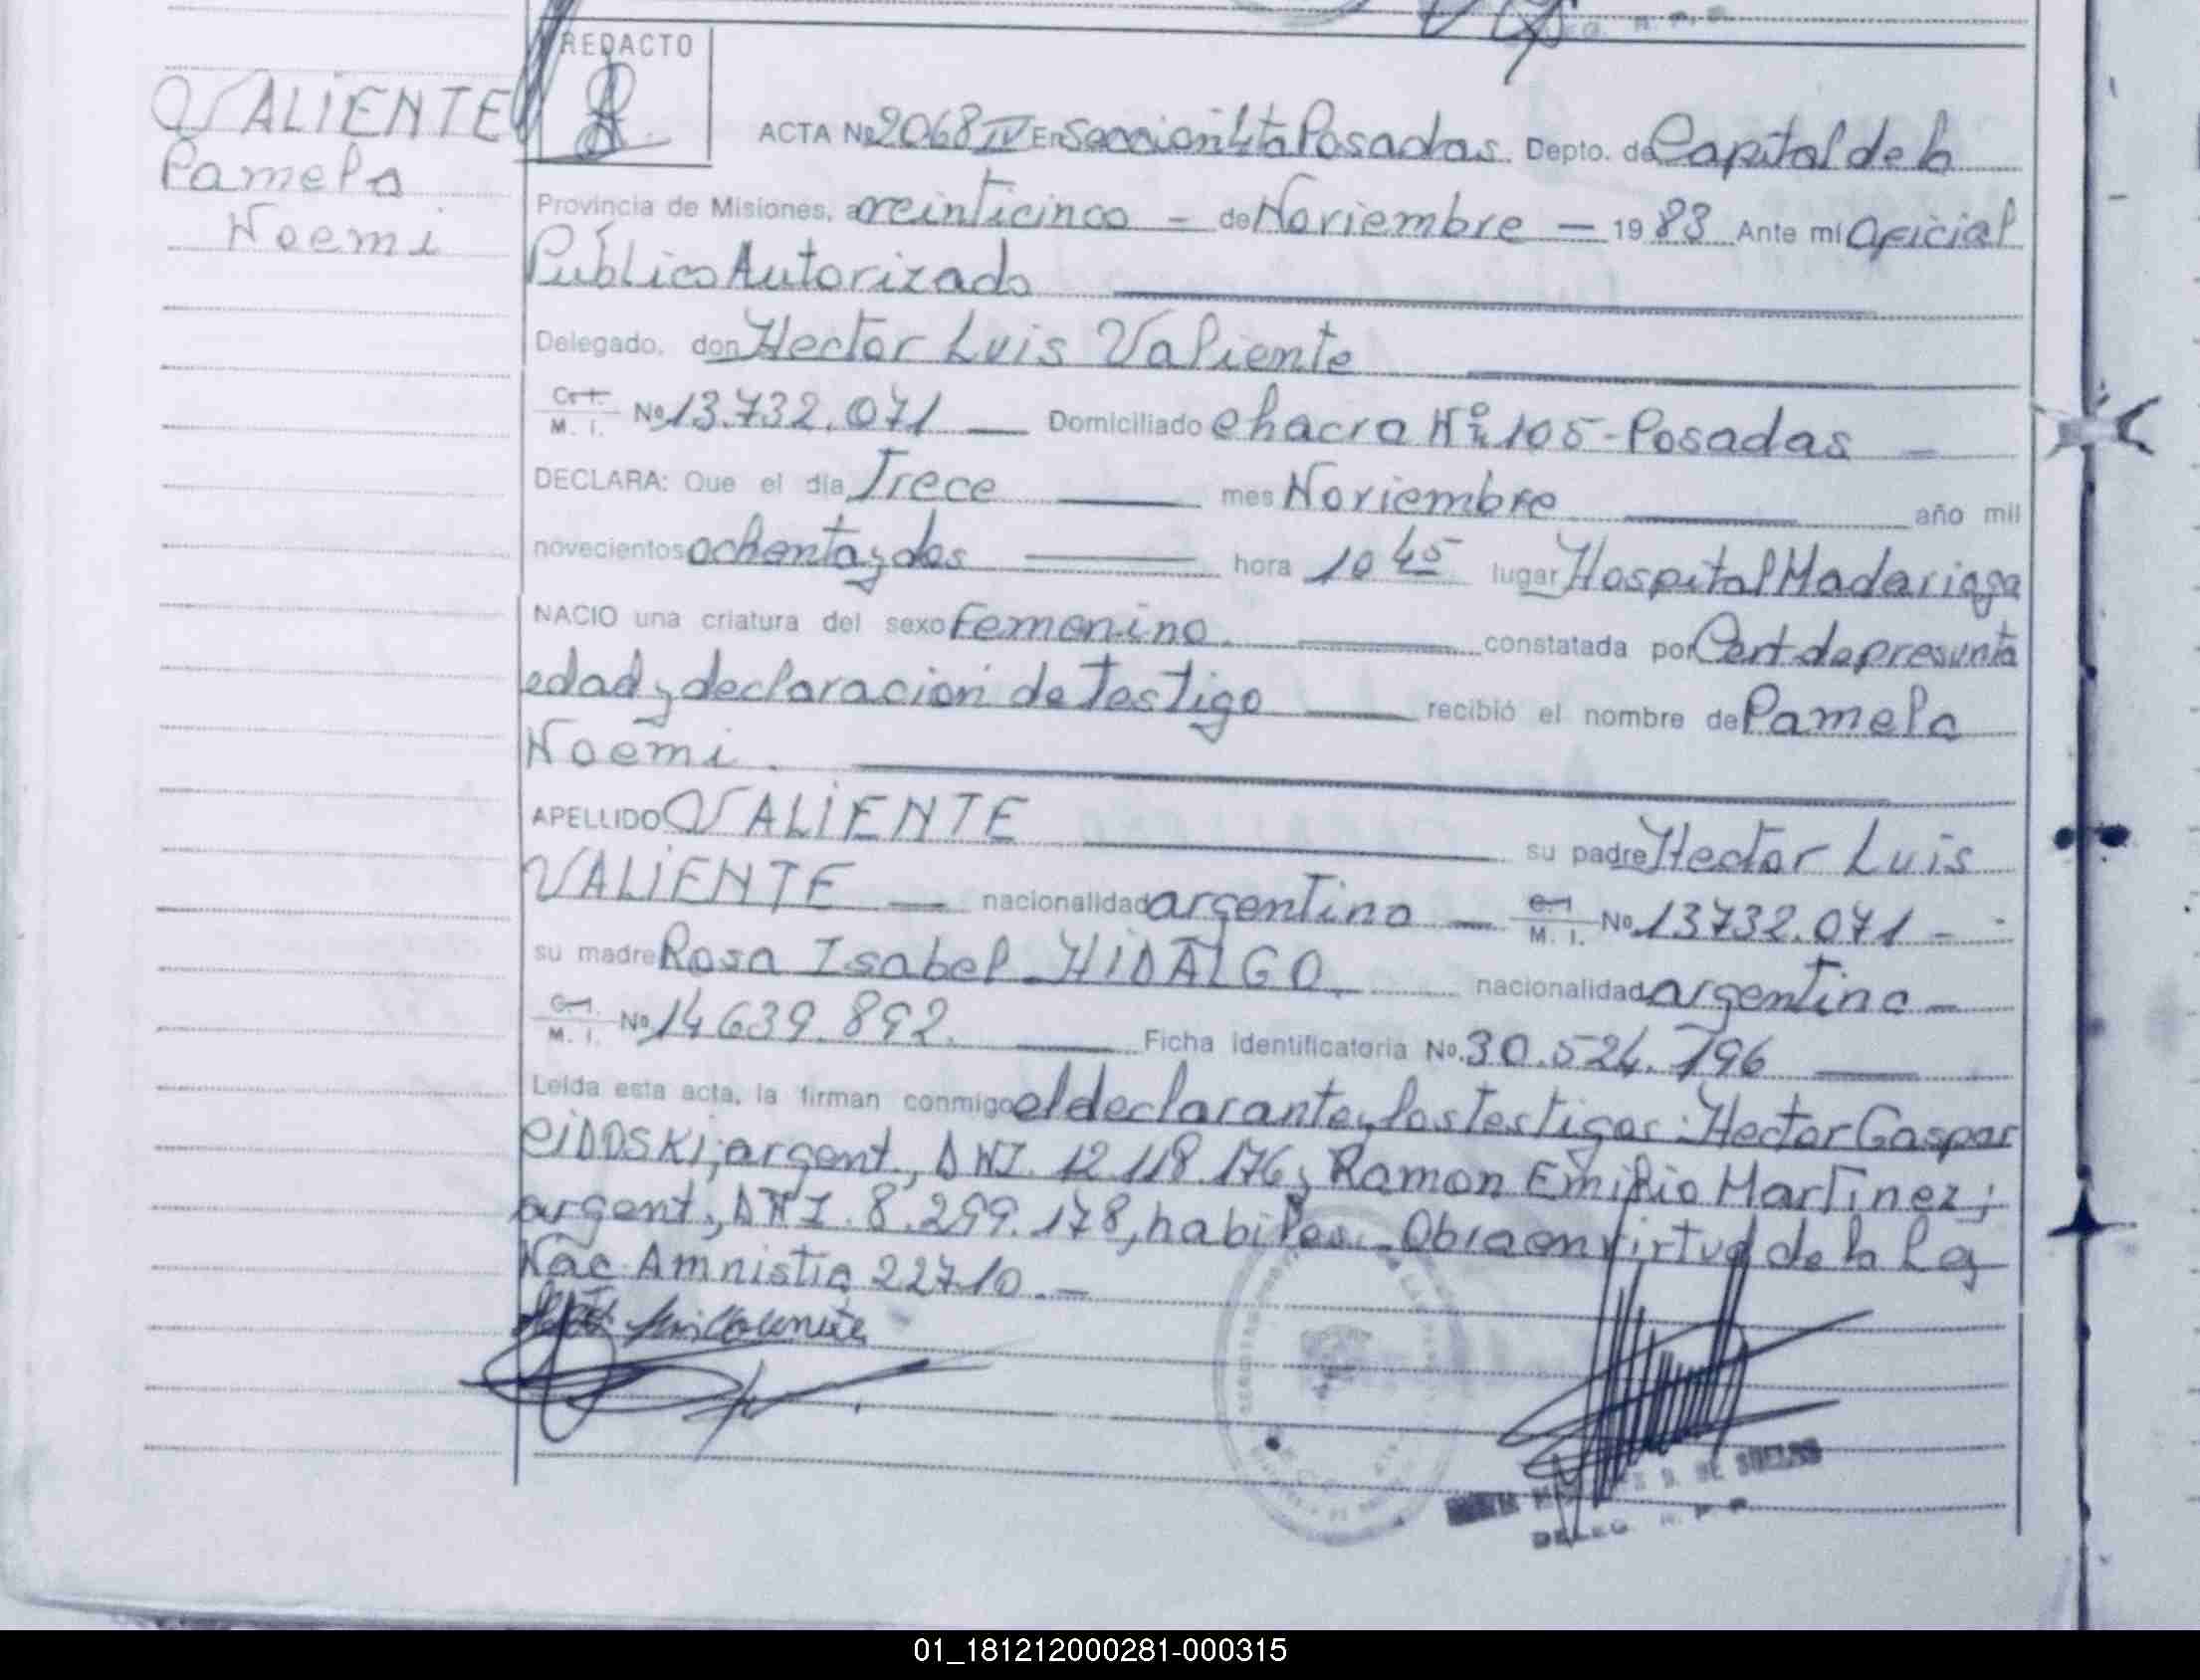 REDACTO
VALIENTE
Pamela
Noemi
ACTA Nº 2068 IV En Sección 4ta Posadas. Depto. de Capital de la
Provincia de Misiones, a veinticinco - de Noviembre - 1983 Ante mí Oficial
Público Autorizado
Delegado, don Hector Luis Valiente
C. I. M. I. Nº 13.732.071 Domiciliado chacra Nº 105 - Posadas -
DECLARA: Que el día Trece mes Noviembre año mil
novecientos ochenta y dos hora 10 45 lugar Hospital Madariaga
NACIO una criatura del sexo Femenino. constatada por Cert. de presunta
edad y declaración de Testigo recibió el nombre de Pamela
Noemi.
APELLIDO VALIENTE su padre Hector Luis
VALIENTE nacionalidad argentino - C. I. M. I. Nº 13732.071 -
su madre Rosa Isabel HIDALGO. nacionalidad argentina -
C. I. M. I. Nº 14639.892. Ficha identificatoria Nº. 30.524.796
Leída esta acta, la firman conmigo el declarante y los testigos: Hector Gaspar
argent., DNI. 12.118.176, Ramon Emilio Martínez;
argent, DNI. 8.299.178, habiles. - Obra en virtud de la Ley
Nac. Amnistia 22710. -
D. DE
DELEG. R. P. P.
01_181212000281-000315